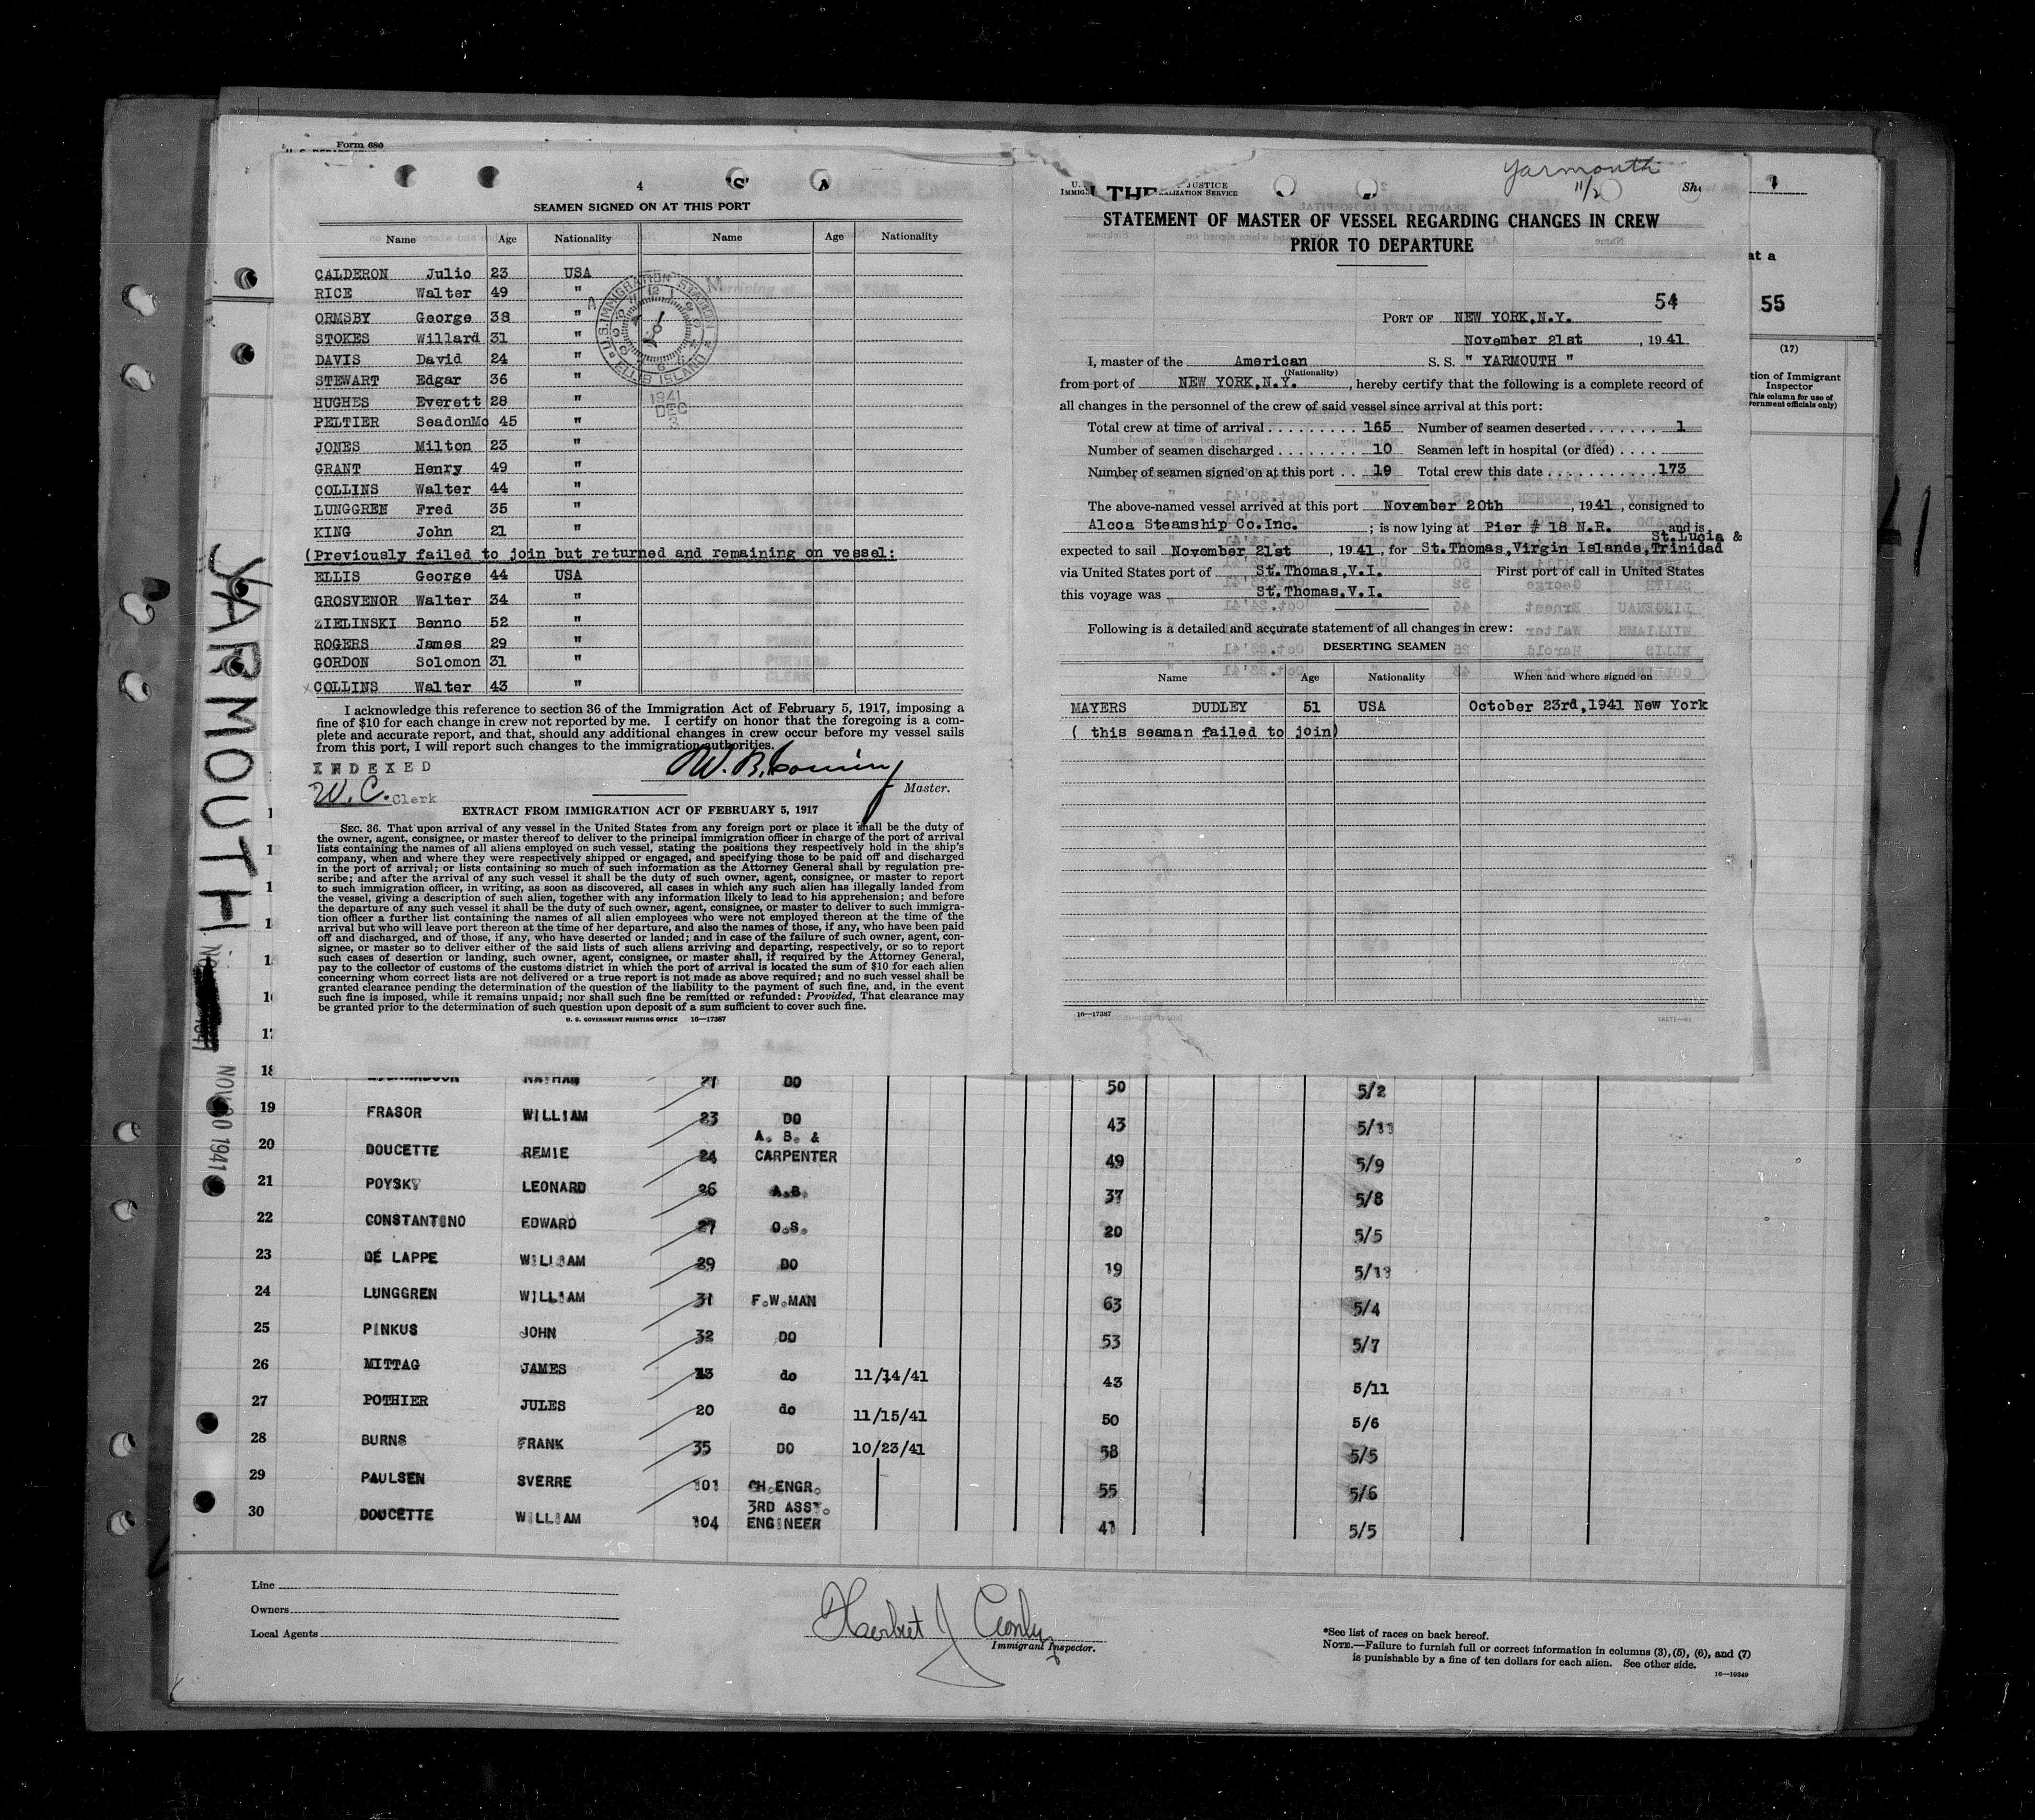 Form 680
4
"S" A
SEAMEN SIGNED ON AT THIS PORT
Name Age Nationality Name Age Nationality
CALDERON Julio 23 USA
RICE Walter 49 "
ORMSBY George 38 "
STOKES Willard 31 "
DAVIS David 24 "
STEWART Edgar 36 "
HUGHES Everett 28 "
PELTIER SeadonMc 45 "
JONES Milton 23 "
GRANT Henry 49 "
COLLINS Walter 44 "
LUNGGREN Fred 35 "
KING John 21 "
(Previously failed to join but returned and remaining on vessel:
ELLIS George 44 USA
GROSVENOR Walter 34 "
ZIELINSKI Benno 52 "
ROGERS James 29 "
GORDON Solomon 31 "
COLLINS Walter 43 "
U.S. IMMIGRATION STATION
ELLIS ISLAND
1941
DEC
I acknowledge this reference to section 36 of the Immigration Act of February 5, 1917, imposing a
fine of $10 for each change in crew not reported by me. I certify on honor that the foregoing is a com-
plete and accurate report, and that, should any additional changes in crew occur before my vessel sails
from this port, I will report such changes to the immigration authorities.
INDEXED
W. C. Clerk
Master.
EXTRACT FROM IMMIGRATION ACT OF FEBRUARY 5, 1917
SEC. 36. That upon arrival of any vessel in the United States from any foreign port or place it shall be the duty of
the owner, agent, consignee, or master thereof to deliver to the principal immigration officer in charge of the port of arrival
lists containing the names of all aliens employed on such vessel, stating the positions they respectively hold in the ship's
company, when and where they were respectively shipped or engaged, and specifying those to be paid off and discharged
in the port of arrival; or lists containing so much of such information as the Attorney General shall by regulation pre-
scribe; and after the arrival of any such vessel it shall be the duty of such owner, agent, consignee, or master to report
to such immigration officer, in writing, as soon as discovered, all cases in which any such alien has illegally landed from
the vessel, giving a description of such alien, together with any information likely to lead to his apprehension; and before
the departure of any such vessel it shall be the duty of such owner, agent, consignee, or master to deliver to such immigra-
tion officer a further list containing the names of all alien employees who were not employed thereon at the time of the
arrival but who will leave port thereon at the time of her departure, and also the names of those, if any, who have been paid
off and discharged, and of those, if any, who have deserted or landed; and in case of the failure of such owner, agent, con-
signee, or master so to deliver either of the said lists of such aliens arriving and departing, respectively, or so to report
such cases of desertion or landing, such owner, agent, consignee, or master shall, if required by the Attorney General,
pay to the collector of customs of the customs district in which the port of arrival is located the sum of $10 for each alien
concerning whom correct lists are not delivered or a true report is not made as above required; and no such vessel shall be
granted clearance pending the determination of the question of the liability to the payment of such fine, and, in the event
such fine is imposed, while it remains unpaid; nor shall such fine be remitted or refunded: Provided, That clearance may
be granted prior to the determination of such question upon deposit of a sum sufficient to cover such fine.
U. S. GOVERNMENT PRINTING OFFICE 16—17387
Yarmouth
11/2
JUSTICE
STATEMENT OF MASTER OF VESSEL REGARDING CHANGES IN CREW
PRIOR TO DEPARTURE
54
PORT OF NEW YORK,N.Y.
November 21st, 1941
I, master of the American S. S. " YARMOUTH "
(Nationality)
from port of NEW YORK,N.Y., hereby certify that the following is a complete record of
all changes in the personnel of the crew of said vessel since arrival at this port:
Total crew at time of arrival . . . . . . . . . 165 Number of seamen deserted . . . . . . . 1
Number of seamen discharged . . . . . . . 10 Seamen left in hospital (or died) . . . .
Number of seamen signed on at this port . . 19 Total crew this date . . . . . . . . . . . 173
The above-named vessel arrived at this port November 20th, 1941, consigned to
Alcoa Steamship Co.Inc. ; is now lying at Pier # 18 N.R. and is
St.Lucia &
expected to sail November 21st, 1941, for St.Thomas,Virgin Islands,Trinidad
via United States port of St.Thomas,V.I. First port of call in United States
this voyage was St.Thomas,V.I.
Following is a detailed and accurate statement of all changes in crew:
DESERTING SEAMEN
Name Age Nationality When and where signed on
MAYERS DUDLEY 51 USA October 23rd,1941 New York
( this seaman failed to join)
16—17387
at a
55
(17)
tion of Immigrant
Inspector
This column for use of
ernment officials only)
YARMOUTH
NOV 20 1941
18 NATHAN 21 DO 50 5/2
19 FRASOR WILLIAM 23 DO 43 5/11
20 DOUCETTE REMIE 24 A. B. & CARPENTER 49 5/9
21 POYSKY LEONARD 26 A.B. 37 5/8
22 CONSTANTINO EDWARD 27 O.S. 20 5/5
23 DE LAPPE WILLIAM 29 DO 19 5/11
24 LUNGGREN WILLIAM 31 F.W.MAN 63 5/4
25 PINKUS JOHN 32 DO 53 5/7
26 MITTAG JAMES 13 do 11/14/41 43 5/11
27 POTHIER JULES 20 do 11/15/41 50 5/6
28 BURNS FRANK 35 DO 10/23/41 58 5/5
29 PAULSEN SVERRE 101 CH.ENGR. 55 5/6
30 DOUCETTE WILLIAM 104 3RD ASST. ENGINEER 41 5/5
Line
Owners
Local Agents
Immigrant Inspector.
*See list of races on back hereof.
NOTE.—Failure to furnish full or correct information in columns (3), (5), (6), and (7)
is punishable by a fine of ten dollars for each alien. See other side.
16—19349